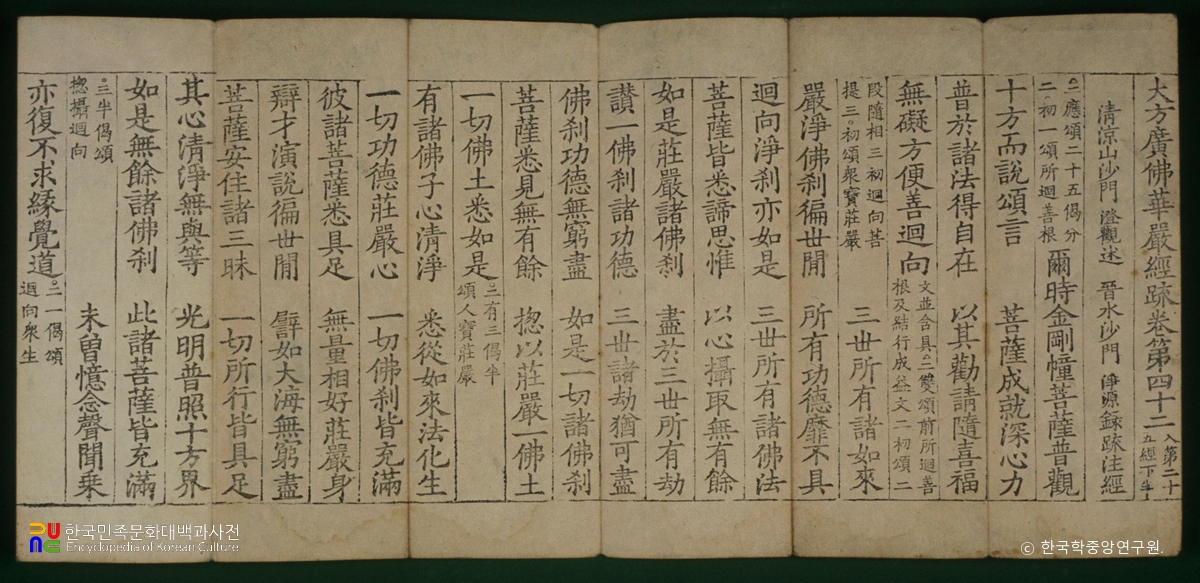 大方廣佛華嚴經疏卷第四十二 入第二十五經下半
清涼山沙門 澄觀述 晉水沙門 淨源錄疏注經
二應頌二十五偈分二初一頌所迴善根 爾時金剛幢菩薩普觀
十方而說頌言 菩薩成就深心力
普於諸法得自在 以其勸請隨喜福
無礙方便善迴向 文並含具二雙頌前所迴善根及結行成益文二初頌二
段隨相三初迴向菩提三初頌衆寶莊嚴 三世所有諸如來
嚴淨佛刹徧世閒 所有功德靡不具
迴向淨刹亦如是 三世所有諸佛法
菩薩皆悉諦思惟 以心攝取無有餘
如是莊嚴諸佛刹 盡於三世所有劫
讃一佛刹諸功德 三世諸劫猶可盡
佛刹功德無窮盡 如是一切諸佛刹
菩薩悉見無有餘 揔以莊嚴一佛土
一切佛土悉如是 二有三偈半頌人寶莊嚴
有諸佛子心清淨 悉從如來法化生
一切功德莊嚴心 一切佛刹皆充滿
彼諸菩薩悉具足 無量相好莊嚴身
辯才演說徧世閒 譬如大海無窮盡
菩薩安住諸三昧 一切所行皆具足
其心清淨無與等 光明普照十方界
如是無餘諸佛刹 此諸菩薩皆充滿
三半偈頌揔攝迴向 未曾憶念聲聞乗
亦復不求緣覺道 二一偈頌迴向衆生
한국민족문화대백과사전
Encyclopedia of Korean Culture
ⓒ 한국학중앙연구원.